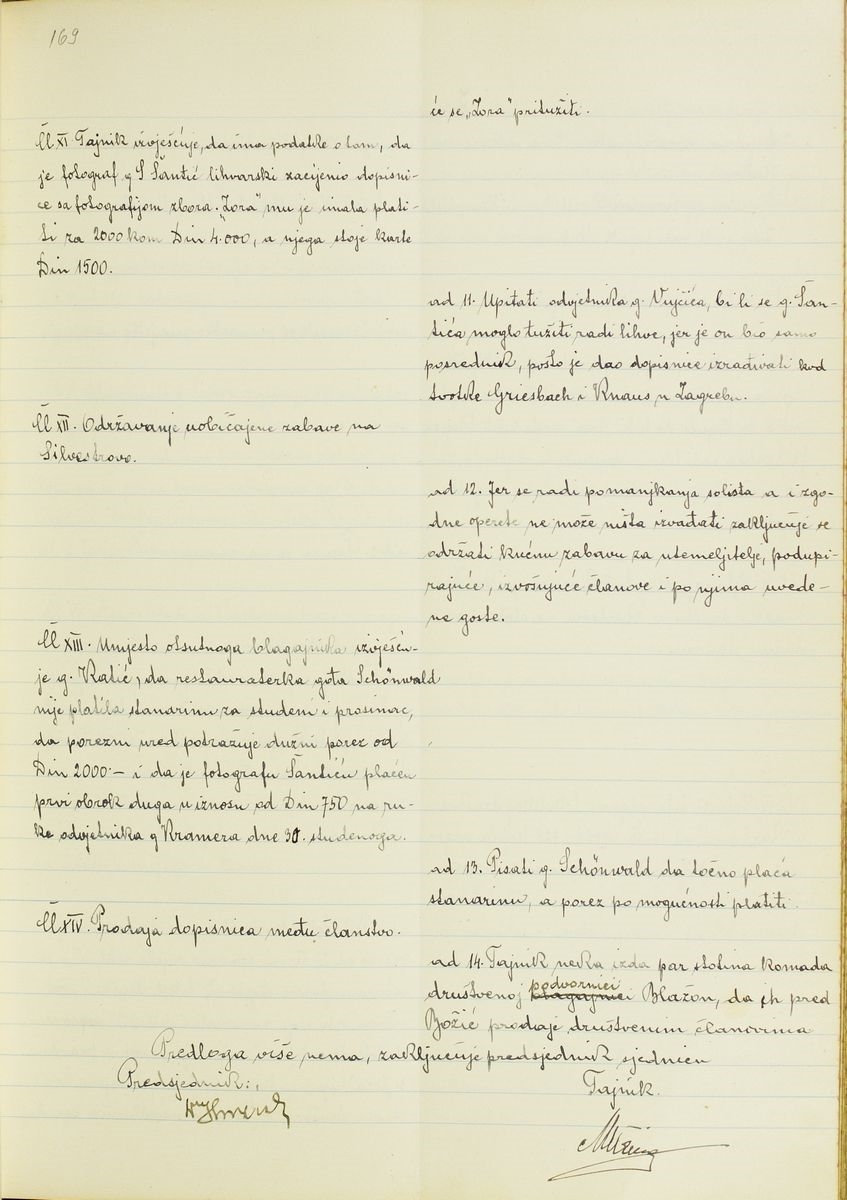 169
će se „Zora" pritužiti.
Čl XI Tajnik izvješćuje, da ima podatke o tom, da
je fotograf g S Šantić lihvarski zacijenio dopisni-
ce sa fotografijom zbora. „Zora" mu je imala plati-
ti za 2000 kom Din 4.000, a njega stoje karte
Din 1500.
ad 11. Upitati odvjetnika g. Vujčića, bi li se g. Šan-
tića moglo tužiti radi lihve, jer je on bio samo
posrednik, pošto je dao dopisnice izrađivati kod
tvotke Griesbach i Knaus u Zagrebu.
Čl XII. Održavanje uobičajene zabave na
Silvestrovo.
ad 12. Jer se radi pomanjkanja solista a i zgo-
dne operete ne može ništa izvađati zaključuje se
održati kućnu zabavu za utemeljitelje, podupi-
rajuće, izvošnjuće članove i po njima uvede-
ne goste.
Čl XIII. Umjesto otsutnoga blagajnika izvješću-
je g. Katić, da restauraterka gđa Schönwald
nije platila stanarinu za studeni i prosinac,
da porezni ured potražuje dužni porez od
Din 2000·— i da je fotografu Šantiću plaćen
prvi obrok duga u iznosu od Din 750 na ru-
ke odvjetnika g Kramera dne 30. studenoga.
ad 13. Pisati g. Schönwald da točno plaća
stanarinu, a porez po mogućnosti platiti.
Čl XIV. Prodaja dopisnica među članstvo.
ad 14. Tajnik neka izda par stotina komada
društvenoj podvornici Blažon, da ih pred
Božić prodaje društvenim članovima
Predloga više nema, zaključuje predsjednik sjednicu
Predsjednik:
Tajnik.